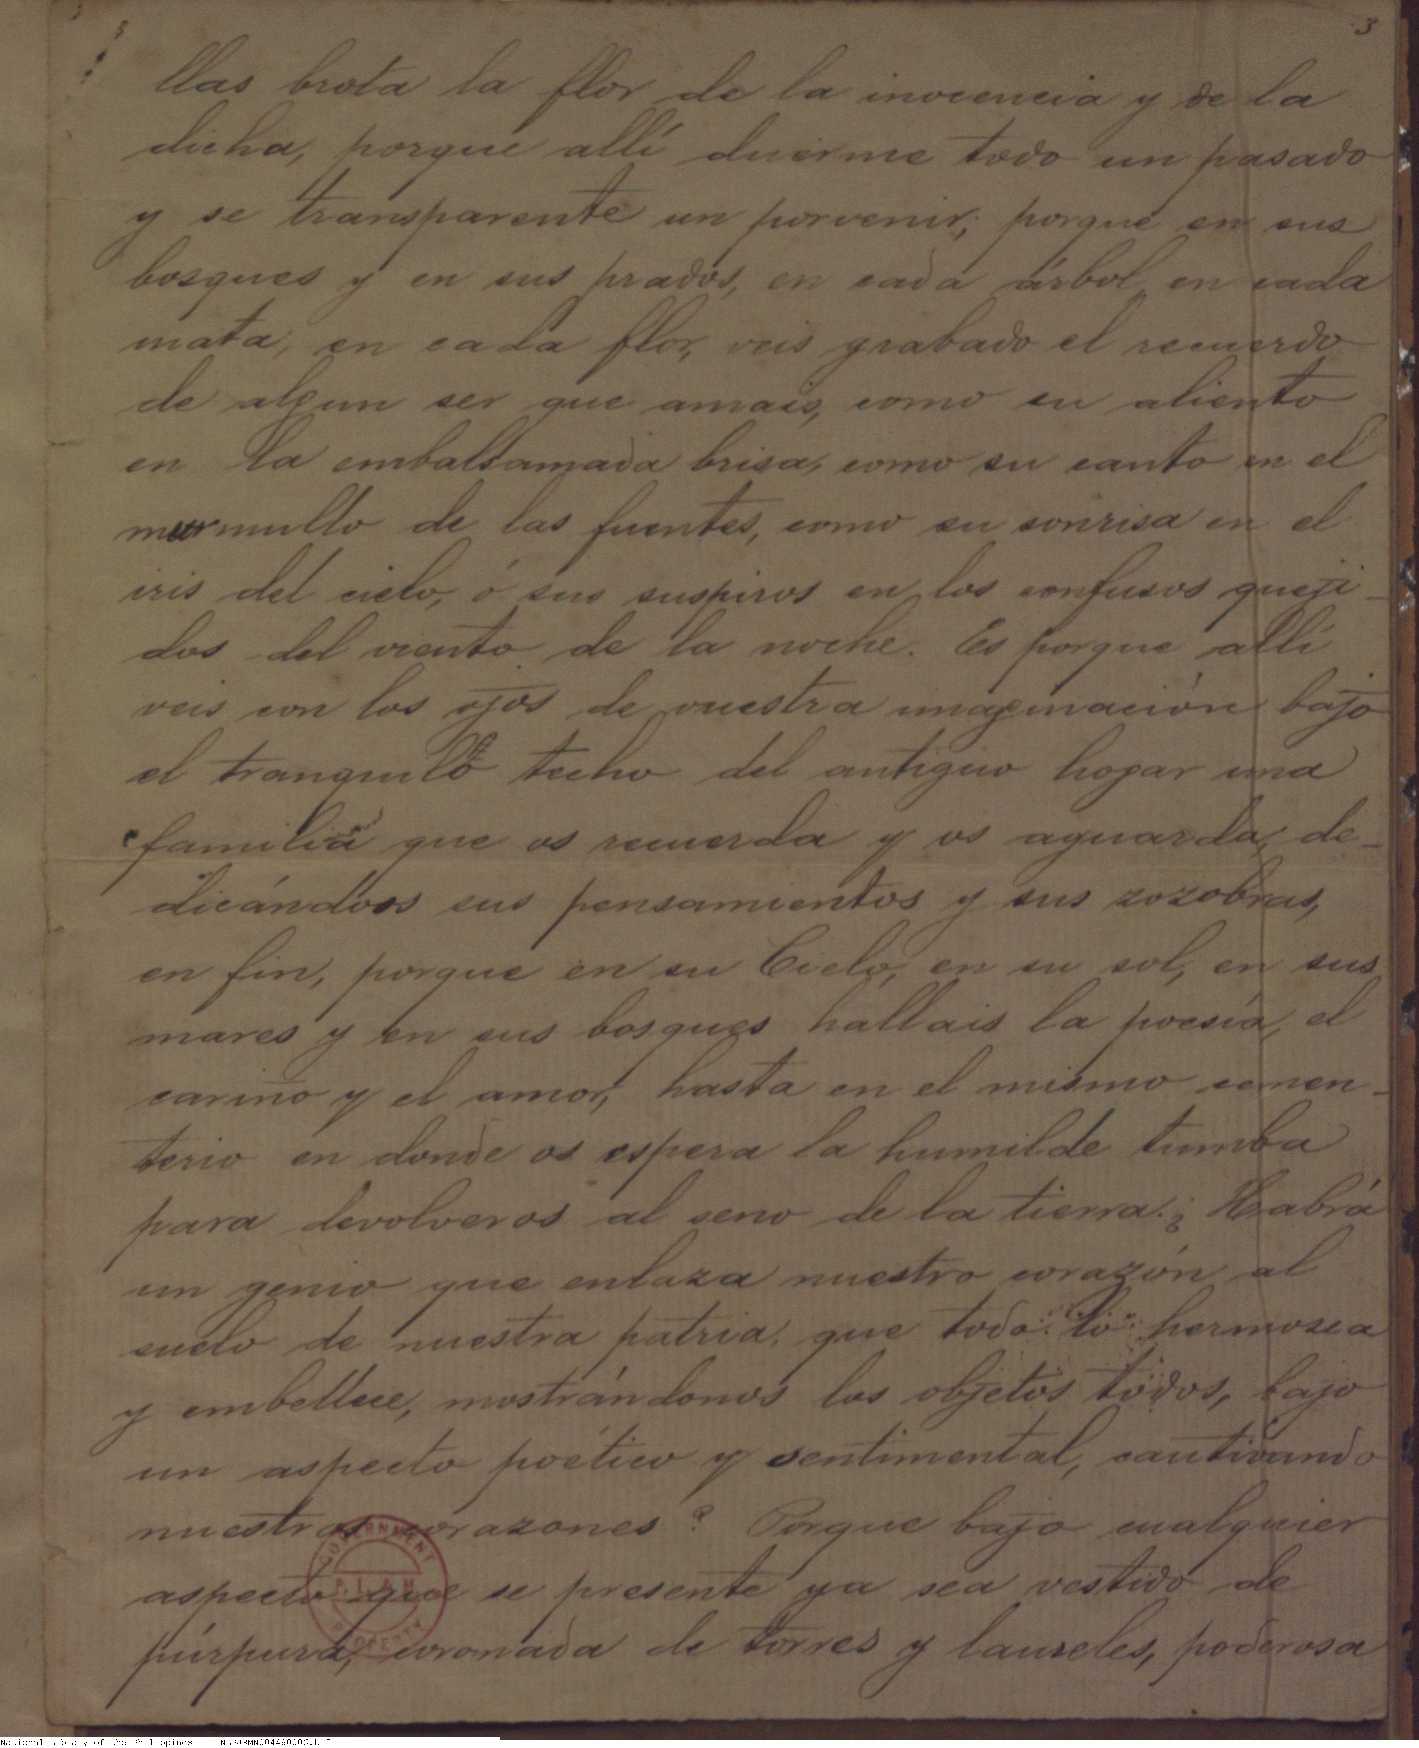 3
llas brota la flor de la inocencia y de la
dicha, porque allí duerme todo un pasado
y se transparente un porvenir; porque en sus
bosques y en sus prados, en cada árbol, en cada
mata, en cada flor, veis grabado el recuerdo
de algun ser que amais, como su aliento
en la embalsamada brisa, como su canto en el
murmullo de las fuentes, como su sonrisa en el
iris del cielo, ó sus suspiros en los confusos queji-
dos del viento de la noche. Es porque allí
veis con los ojos de vuestra imaginación bajo
el tranquilo techo del antiguo hogar una
familia que os recuerda y os aguarda, de-
dicándoos sus pensamientos y sus zozobras,
en fin, porque en su Cielo, en su sol, en sus
mares y en sus bosques hallais la poesía, el
cariño y el amor, hasta en el mismo cemen-
terio en donde os espera la humilde tumba
para devolveros al seno de la tierra. ¿Habrá
un genio que enlaza nuestro corazón al
suelo de nuestra patria, que todo lo hermosea
y embellece, mostrándonos los objetos todos, bajo
un aspecto poético y sentimental, cautivando
nuestros corazones? Porque bajo cualquier
aspecto que se presente ya sea vestido de
púrpura, coronada de torres y laureles, poderosa
GOVERNMENT
PROPERTY
National Library of the Philippines